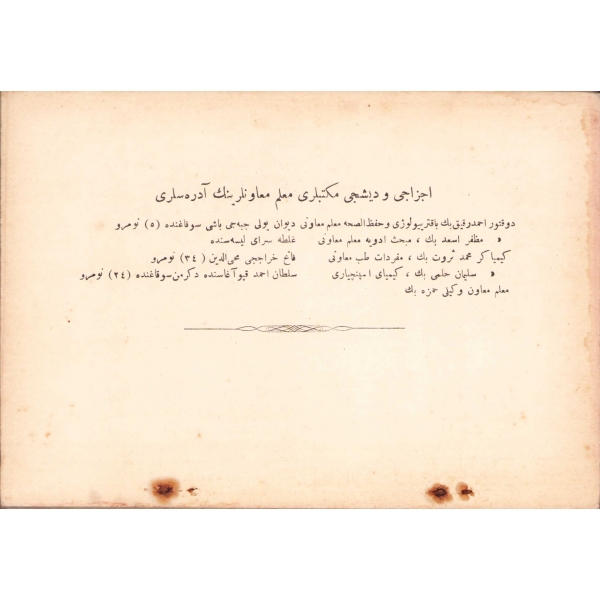 اجزاجی و دیشجی مكتبلری معلم معاونلرینك آدره‌سلری
دوقتور احمد رفیق بك باقتریولوژی و حفظ الصحه معلم معاونی دیوان یولی جبه‌جی باشی سوقاغنده (٥) نومرو
» مظفر اسعد بك ، مبحث ادویه معلم معاونی غلطه سرای لیسه‌سنده
كیمیاكر محمد ثروت بك ، مفردات طب معاونی فاتح خراججی محی‌الدین (٣٤) نومرو
» سلیمان حلمی بك ، كیمیای اسپنچیاری سلطان احمد قپو آغاسنده دكرمن سوقاغنده (٢٤) نومرو
معلم معاون وكیلی حمزه بك